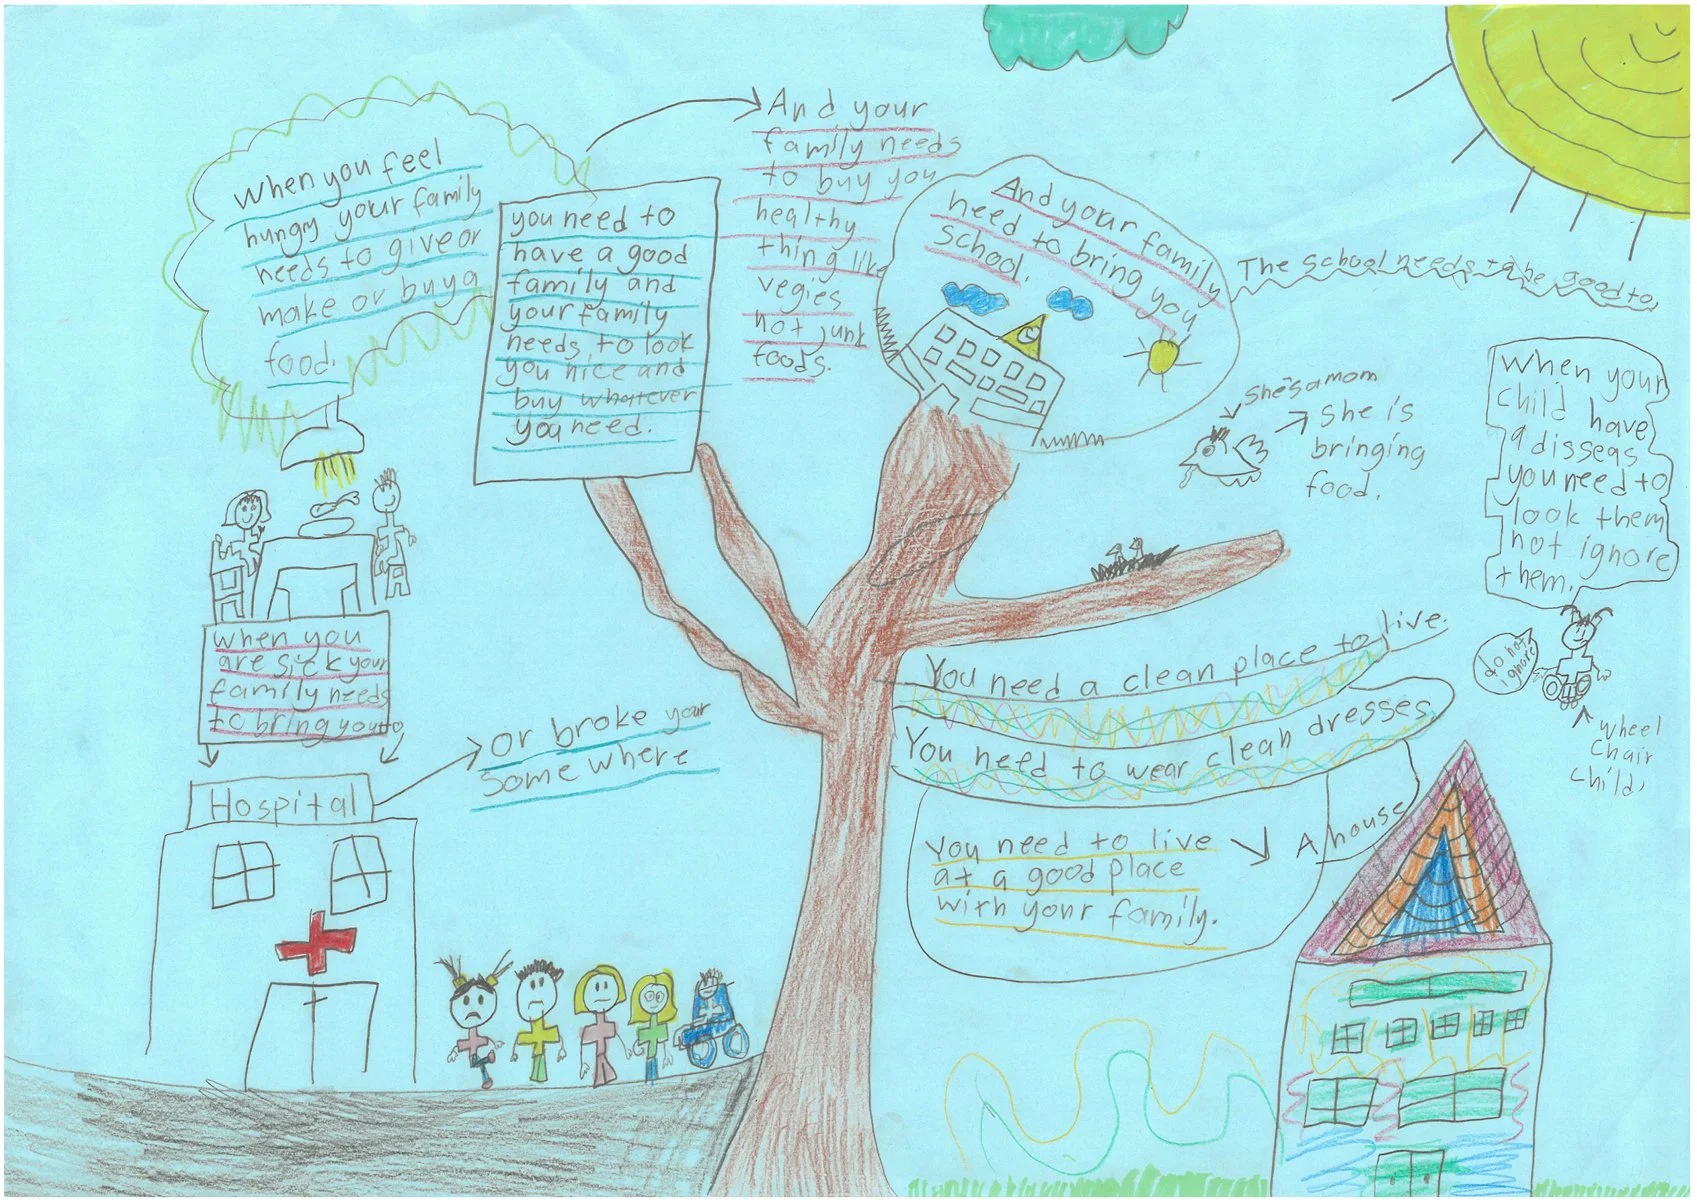 When you feel
hungry your family
needs to give or
make or buy a
food.
you need to
have a good
family and
your family
needs to look
you nice and
buy whatever
you need.
And your
family needs
to buy you
healthy
thing like
vegies
not junk
foods.
And your family
need to bring you
school.
The school needs to be good to.
She's a mom
She is
bringing
food.
When your
child have
a disseas
you need to
look them
not ignore
them.
do not
ignore
Wheel
Chair
Child.
when you
are sick your
family needs
to bring you to
Hospital
or broke your
some where
You need a clean place to live.
You need to wear clean dresses.
You need to live
at a good place
with your family.
A house